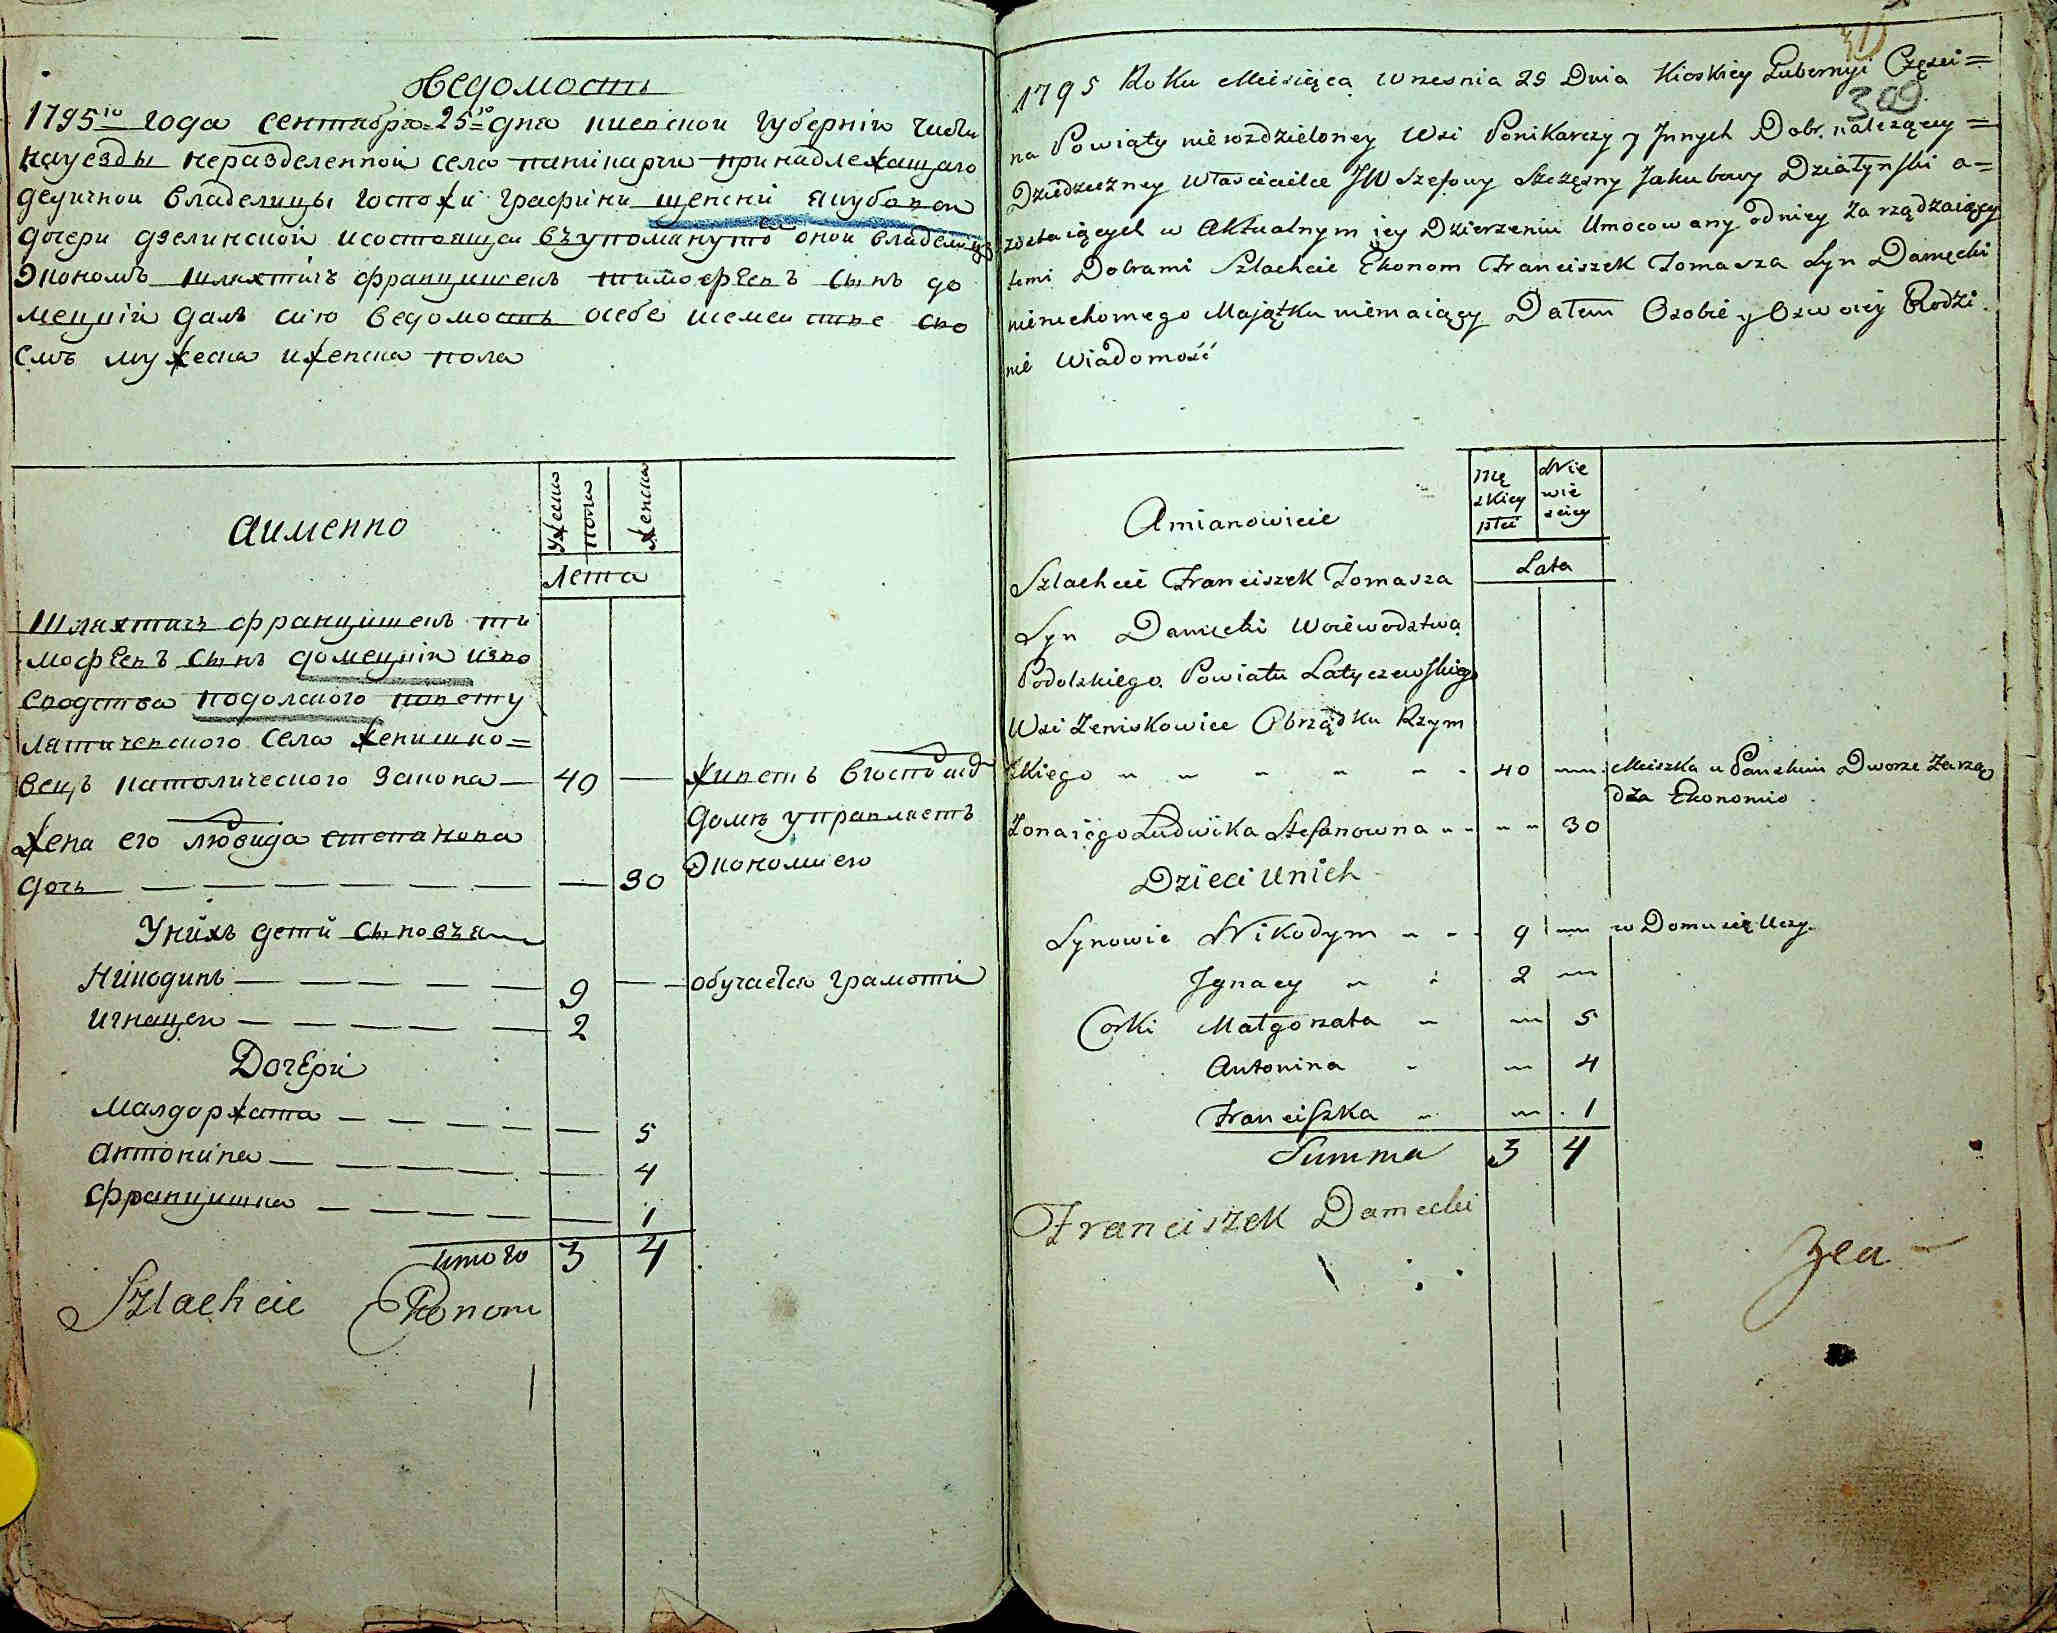 Ведомость
1795го года сентабра 25го дня киевской губерніи части
науезды неразделенной села паникарчи принадлежащаго
дедичной владелицы госпожи графини щенсній якубовой
дочери дзелинской исостоящей въупоманутой оной владелицы
Экономъ шляхтичъ францишекъ тимофеевъ сынъ до
мецкій далъ сию ведомость осебе исемействе сво
емъ мужеска иженска пола
аименно
мужеска пола
женска
Лета
Шляхтичъ францишекъ ти
мофеевъ сынъ домецкій изво
еводства подолского повету
латичевского села женишко=
вецъ католического закона 40
живетъ вгосподск
домѣ управляетъ
Экономиею
жена его людвида степанова
дочь 30
Унихъ детй сыновья
Никодимъ 9 обучается грамоти
игнацеи 2
Дочери
малгоржата 5
антонина 4
францишка 1
итого 3 4
Szlachcic Ekonom
309
1795 Roku Miesiąca Wrzesnia 25 Dnia Kiioskiey Gubernyi Części=
na Powiaty nierozdzieloney Wsi Ponikarczy y Innych Dobr należący=
Dziedziczney Włascicielce JW Szefowy Szczęsny Jakubowy Działynski o=
zostaiących w Aktualnym iey Dzierzeniu Umocowany odniey Zarządzaiący
temi Dobrami Szlachcic Ekonom Franciszek Tomasza Syn Damęcki
nieruchomego Maiątku niemaiący Datem Osobie y Oswoiey Rodzi
nie Wiadomość
Amianowicie
Mę
skiey
płci
Nie
wie
sciey
Lata
Szlachcic Franciszek Tomasza
Syn Damęcki Woiewodztwa
Podolskiego Powiatu Latyczewskieg
Wsi Zeniskowiec Obrządku Rzym
skiego 40 Mieszka u Panskim Dworze Zarzą
dza Ekonomio
Zona iego Ludwika Stefanowna 30
Dzieci Unich
Synowie Nikodym 9 w Domu się Uczy
Ignacy 2
Corki Małgorzata 5
Antonina 4
Franciszka 1
Summa 3 4
Franciszek Damecki